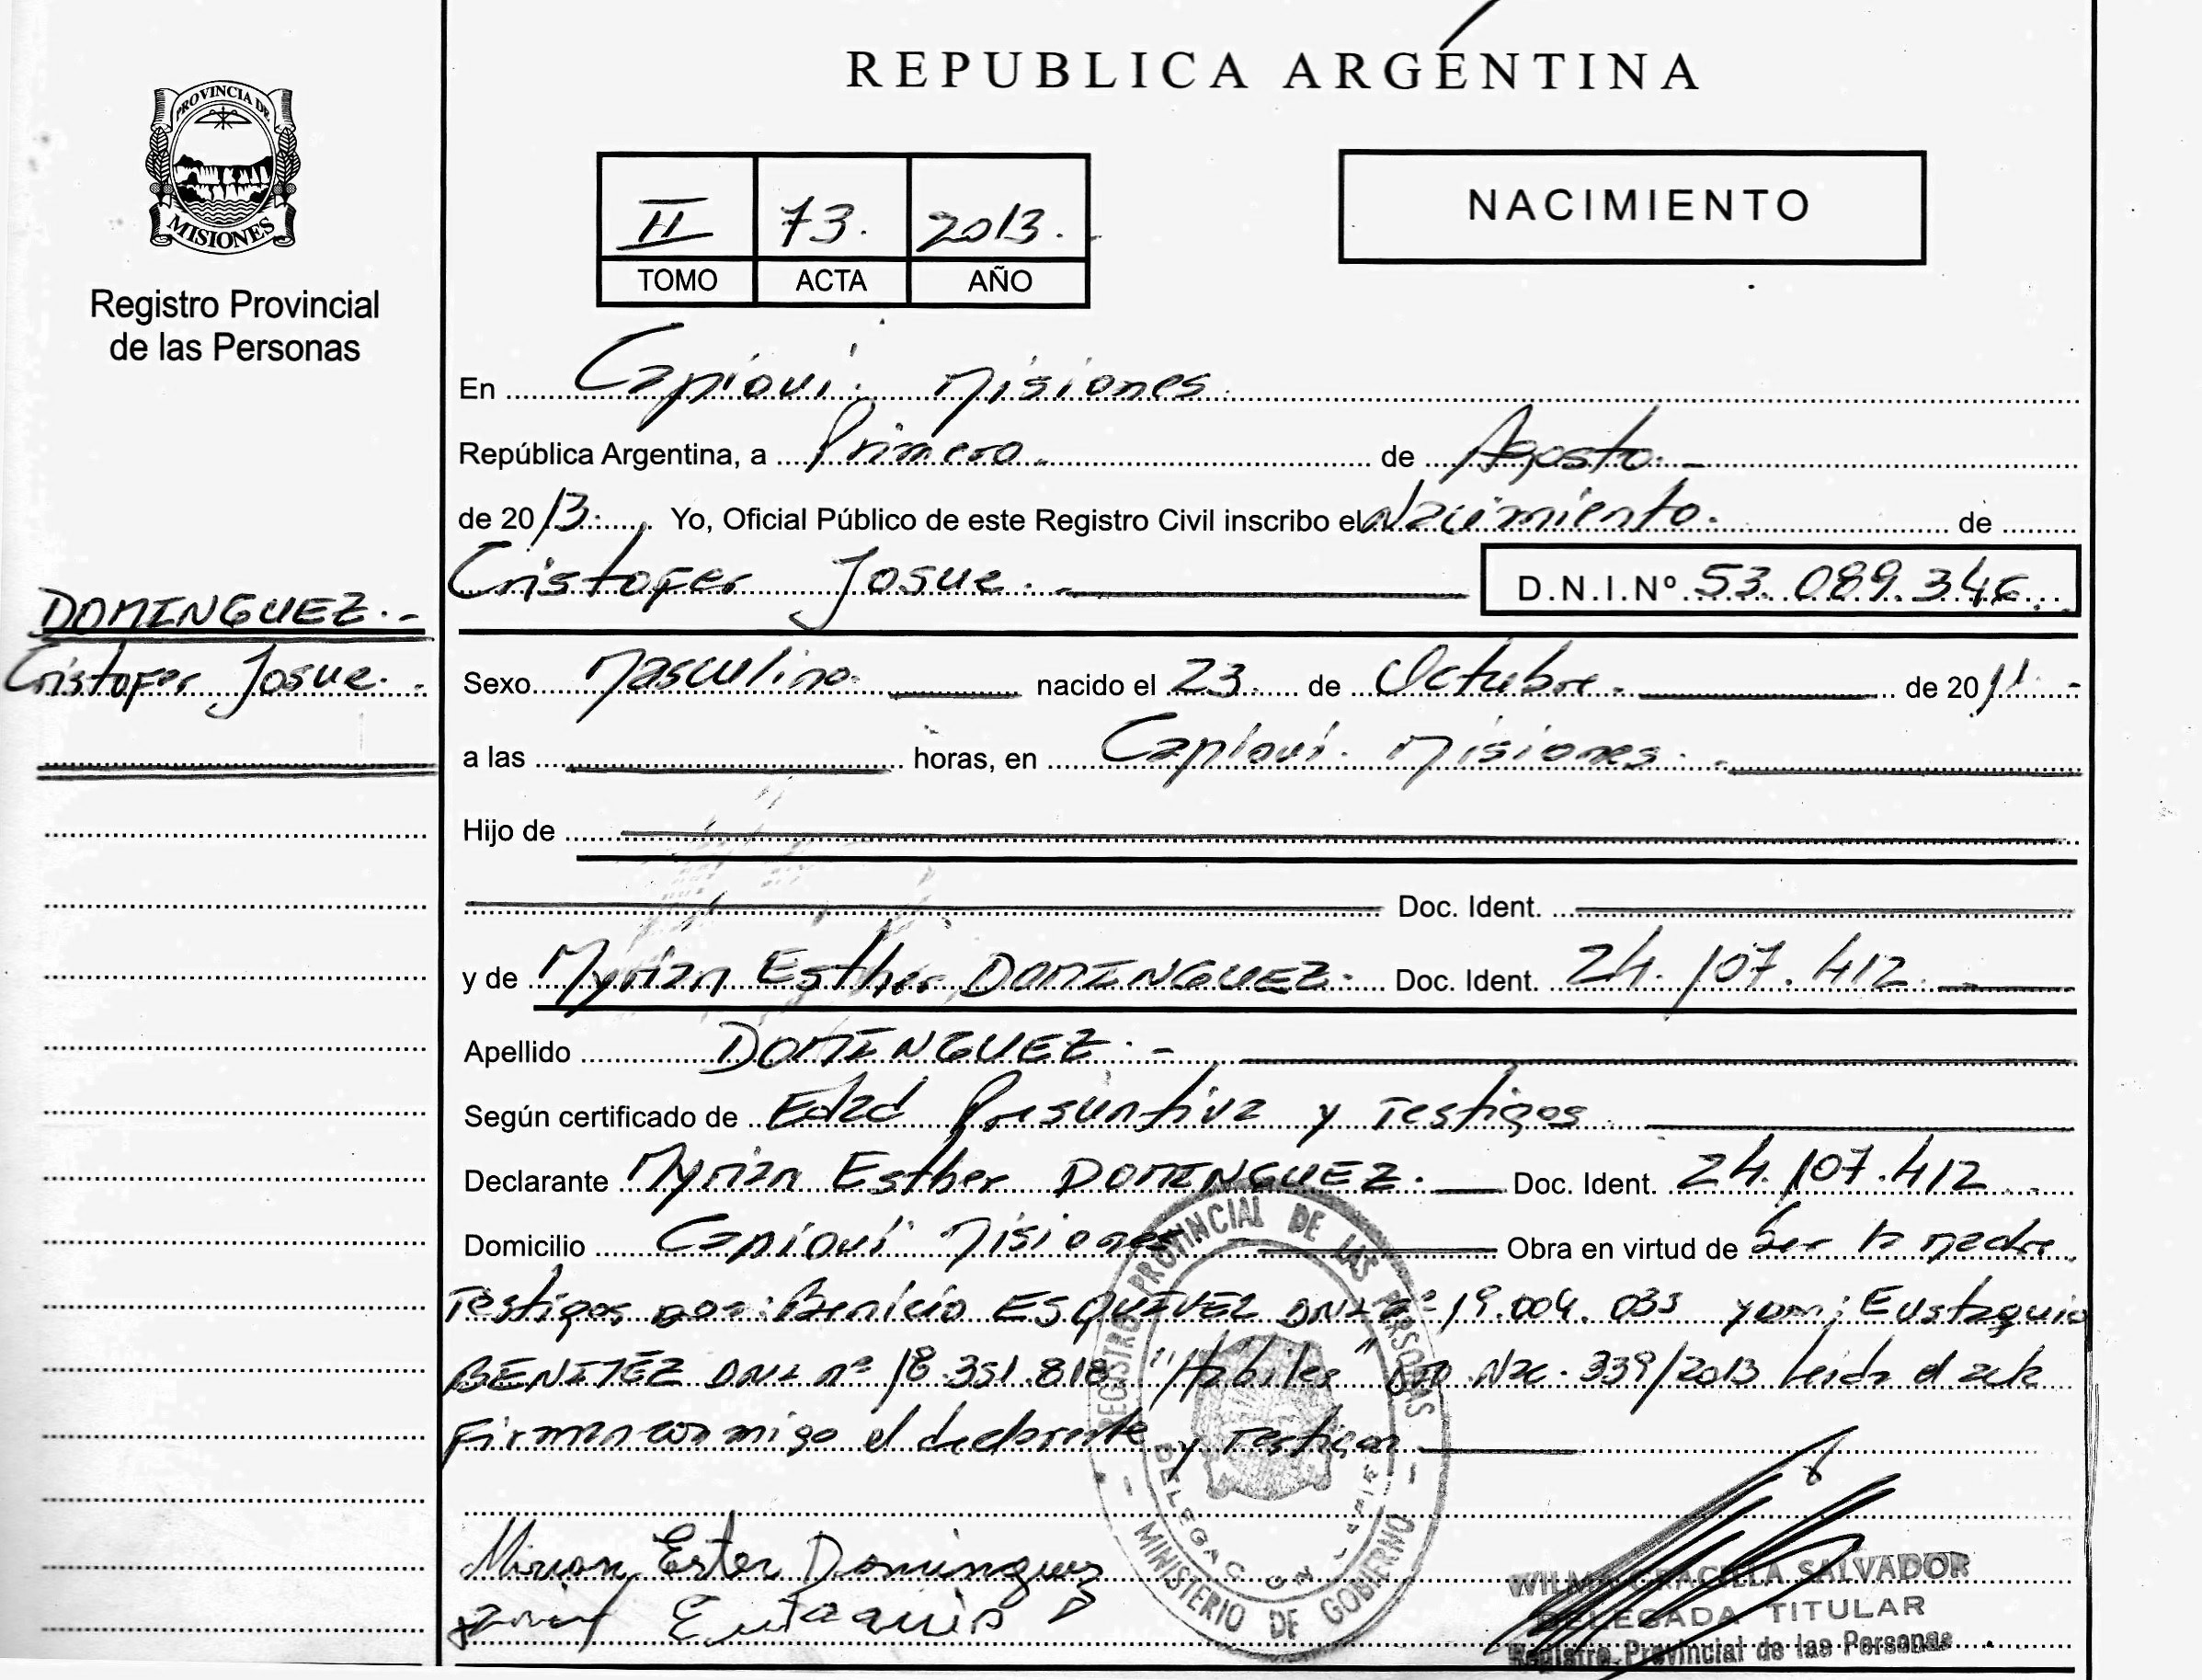 REPUBLICA ARGENTINA
PROVINCIA DE
MISIONES
Registro Provincial
de las Personas
II 73. 2013.
TOMO ACTA AÑO
NACIMIENTO
En Capioví. Misiones.
República Argentina, a Primero. de Agosto.
de 2013. Yo, Oficial Público de este Registro Civil inscribo el Nacimiento. de
Cristofer Josue. D.N.I.Nº 53.089.346.
DOMINGUEZ.-
Cristofer Josue.
Sexo Masculino. nacido el 23 de Octubre. de 2011.
a las horas, en Capioví. Misiones.
Hijo de
Doc. Ident.
y de Myrian Esther DOMINGUEZ. Doc. Ident. 24.107.412
Apellido DOMINGUEZ.-
Según certificado de Edad Presuntiva y Testigos
Declarante Myrian Esther DOMINGUEZ. Doc. Ident. 24.107.412
Domicilio Capioví Misiones Obra en virtud de Ser la madre.
Testigos Benicio ESQUIVEL DNI nº 19.004.033 Eustaquio
BENITEZ DNI nº 18.351.818. "Hábiles" Nac. 339/2013 Leída el acta
Firman conmigo el declarante y Testigos
Mirian Ester Dominguez
Eutaquio B
REGISTRO PROVINCIAL DE LAS PERSONAS
MINISTERIO DE GOBIERNO
WILMA GRACIELA SALVADOR
DELEGADA TITULAR
Registro Provincial de las Personas